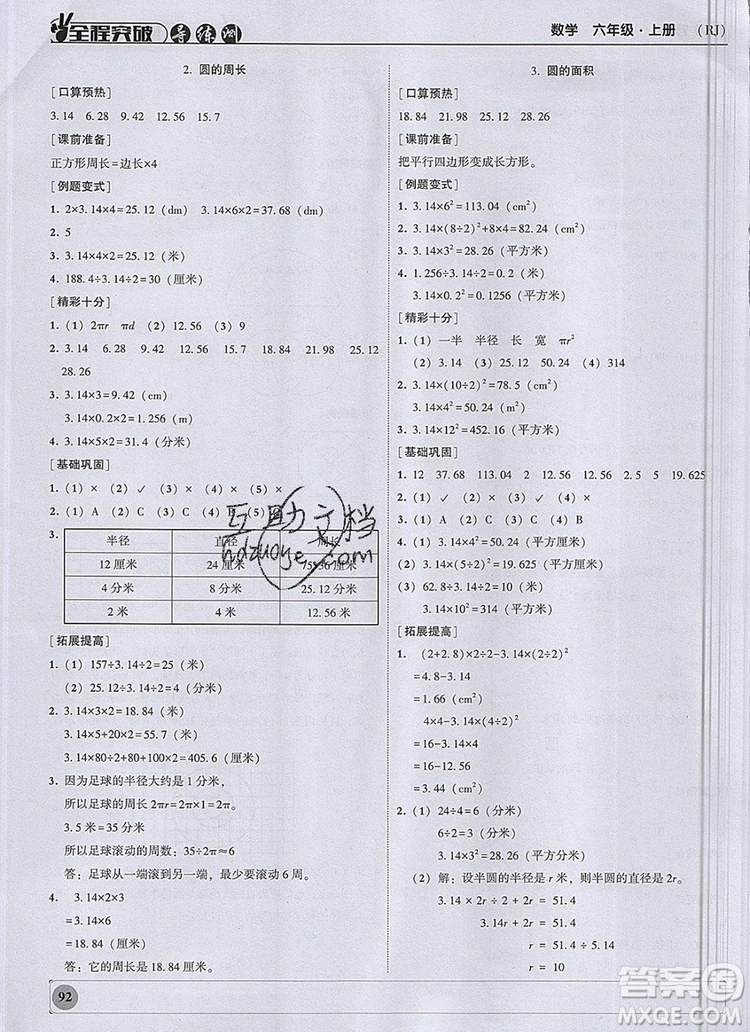 全程突破 导练测
数学 六年级·上册 (RJ)
2. 圆的周长
[口算预热]
3.14 6.28 9.42 12.56 15.7
[课前准备]
正方形周长=边长×4
[例题变式]
1. 2×3.14×4=25.12(dm) 3.14×6×2=37.68(dm)
2. 5
3. 3.14×4×2=25.12(米)
4. 188.4÷3.14÷2=30(厘米)
[精彩十分]
1. (1) 2πr πd (2) 12.56 (3) 9
2. 3.14 6.28 9.42 12.56 15.7 18.84 21.98 25.12
28.26
3. 3.14×3=9.42(cm)
3.14×0.2×2=1.256(m)
4. 3.14×5×2=31.4(分米)
[基础巩固]
1. (1) × (2) ✓ (3) × (4) × (5) ×
2. (1) A (2) C (3) C (4) A (5) C
3.
半径 直径 周长
12 厘米 24 厘米 75.36 厘米
4 分米 8 分米 25.12 分米
2 米 4 米 12.56 米
[拓展提高]
1. (1) 157÷3.14÷2=25(米)
(2) 25.12÷3.14÷2=4(分米)
2. 3.14×3×2=18.84(米)
3.14×5+20=35.7(厘米)
3.14×80÷2+80+100×2=405.6(厘米)
3. 因为足球的半径大约是 1 分米,
所以足球的周长 2πr=2π×1=2π。
3.5 米=35 分米
所以足球滚动的周数:35÷2π≈6
答:足球从一端滚到另一端,大约滚动 6 周。
4. 3.14×2×3
=3.14×6
=18.84(米)
答:它的周长是 18.84 厘米。
92
3. 圆的面积
[口算预热]
18.84 21.98 25.12 28.26
[课前准备]
把平行四边形变成长方形。
[例题变式]
1. 3.14×6²=113.04(cm²)
2. 3.14×(8÷2)²+8×4=82.24(cm²)
3. 3.14×3²=28.26(平方米)
4. 1.256÷3.14÷2=0.2(米)
3.14×0.2²=0.1256(平方米)
[精彩十分]
1. (1) 一半 半径 长 宽 πr²
(2) 3.14 (3) 25.12 50.24 (4) 314
2. 3.14×(10÷2)²=78.5(cm²)
3.14×4²=50.24(cm²)
3. 3.14×12²=452.16(平方米)
[基础巩固]
1. 12 37.68 113.04 2 12.56 12.56 2.5 5 19.625
2. (1) ✓ (2) × (3) × (4) × (5) ✓
3. (1) A (2) C (3) A (4) C (5) A
4. (1) 3.14×4²=50.24(平方厘米)
(2) 3.14×(5÷2)²=19.625(平方分米)
(3) 62.8÷3.14÷2=10(分米)
3.14×10²=314(平方分米)
[拓展提高]
1. (2+2.8)×4÷2-3.14×(2÷2)²
=4.8-3.14
=1.66(cm²)
4×4-3.14×(4÷2)²
=16-3.14×4
=16-12.56
=3.44(cm²)
2. (1) 24÷4=6(分米)
6÷2=3(分米)
3.14×3²=28.26(平方分米)
(2) 解:设半圆的半径是 r 米,则半圆的直径是 2r 米。
3.14×r×2÷2+2r=51.4
3.14r+2r=51.4
r=51.4÷5.14
r=10
互助文档
hdzuoye.com
答案圈
MXQE.COM